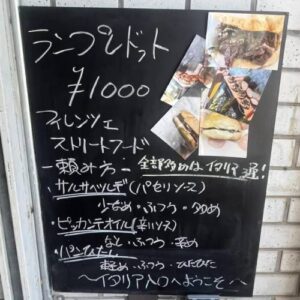 ランプレドット
¥1000
フィレンツェ
ストリートフード
ー頼み方ー 全部多めは イタリア通!
・サルサベルデ(パセリソース)
少なめ・ふつう・多め
・ピッカンテオイル(辛いソース)
なし・ふつう・辛め
・パンだくだく
軽め・ふつう・びたびた
〜イタリア入口へようこそ〜